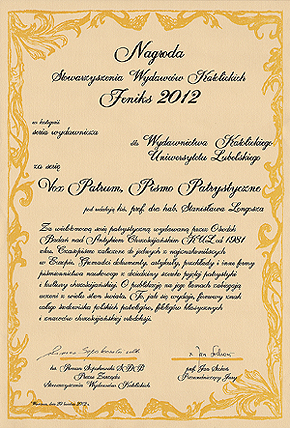 Nagroda
Stowarzyszenia Wydawców Katolickich
Feniks 2012
w kategorii
seria wydawnicza
dla Wydawnictwa Katolickiego
Uniwersytetu Lubelskiego
za serię
Vox Patrum, Pismo Patrystyczne
pod redakcją ks. prof. dr hab. Stanisława Longosza
Za wieloletnią serię patrystyczną wydawaną przez Ośrodek
Badań nad Antykiem Chrześcijańskim KUL od 1981
roku. Czasopismo zaliczane do jednych z najznakomitszych
w Europie. Gromadzi dokumenty, artykuły, przekłady i inne formy
piśmiennictwa naukowego z dziedziny szeroko pojętej patrystyki
i kultury chrześcijańskiej. O publikację na jego łamach zabiegają
uczeni z wielu stron świata. To, jak się wydaje, firmowy znak
całego środowiska polskich patrologów, filologów klasycznych
i znawców chrześcijańskiej młodości.
ks. Roman Szpakowski SDB
Prezes Zarządu
Stowarzyszenia Wydawców Katolickich
prof. Jan
Przewodniczący Jury
Warszawa, 2012 r.